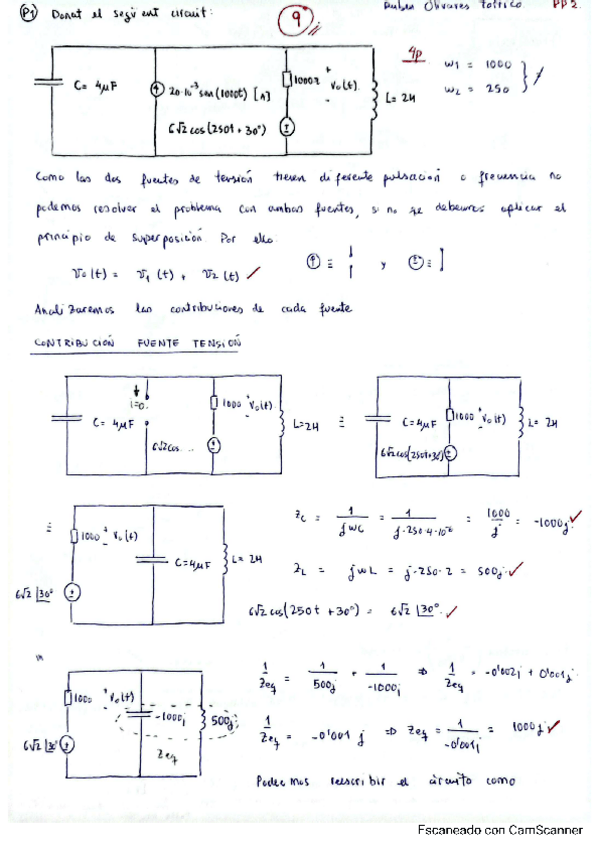 P1 Donat el següent circuit: 9 Ruben Olivares PP2.
C= 4µF
20·10⁻³ sen(1000t) [A]
1000Ω
+ V₀(t) -
L=2H
6√2 cos(250t + 30°)
4p
w1 = 1000
w2 = 250
Como las dos fuentes de tensión tienen diferente pulsación o frecuencia no
podemos resolver el problema con ambas fuentes, si no que debemos aplicar el
principio de superposición. Por ello:
V₀(t) = V₁(t) + V₂(t)
≡ y ≡
Analizaremos las contribuciones de cada fuente
CONTRIBUCIÓN FUENTE TENSIÓN
i=0
C= 4µF
1000 + V₀(t)
6√2cos ...
L=2H
≡
C=4µF
1000 + V₀(t)
6√2cos(250t+30°)
L= 2H
≡
1000 + V₀(t)
C=4µF
L= 2H
6√2 |30°
Zc = 1/jwC = 1/j·250·4·10⁻⁶ = 1000/j = -1000j
ZL = jwL = j·250·2 = 500j
6√2cos(250t + 30°) = 6√2 |30°
1000 + V₀(t)
-1000j
500j
6√2 |30°
Zeq
1/Zeq = 1/500j + 1/-1000j ⇒ 1/Zeq = -0'002j + 0'001j
1/Zeq = -0'001 j ⇒ Zeq = 1/-0'001j = 1000j
Podemos reescribir el circuito como
Escaneado con CamScanner